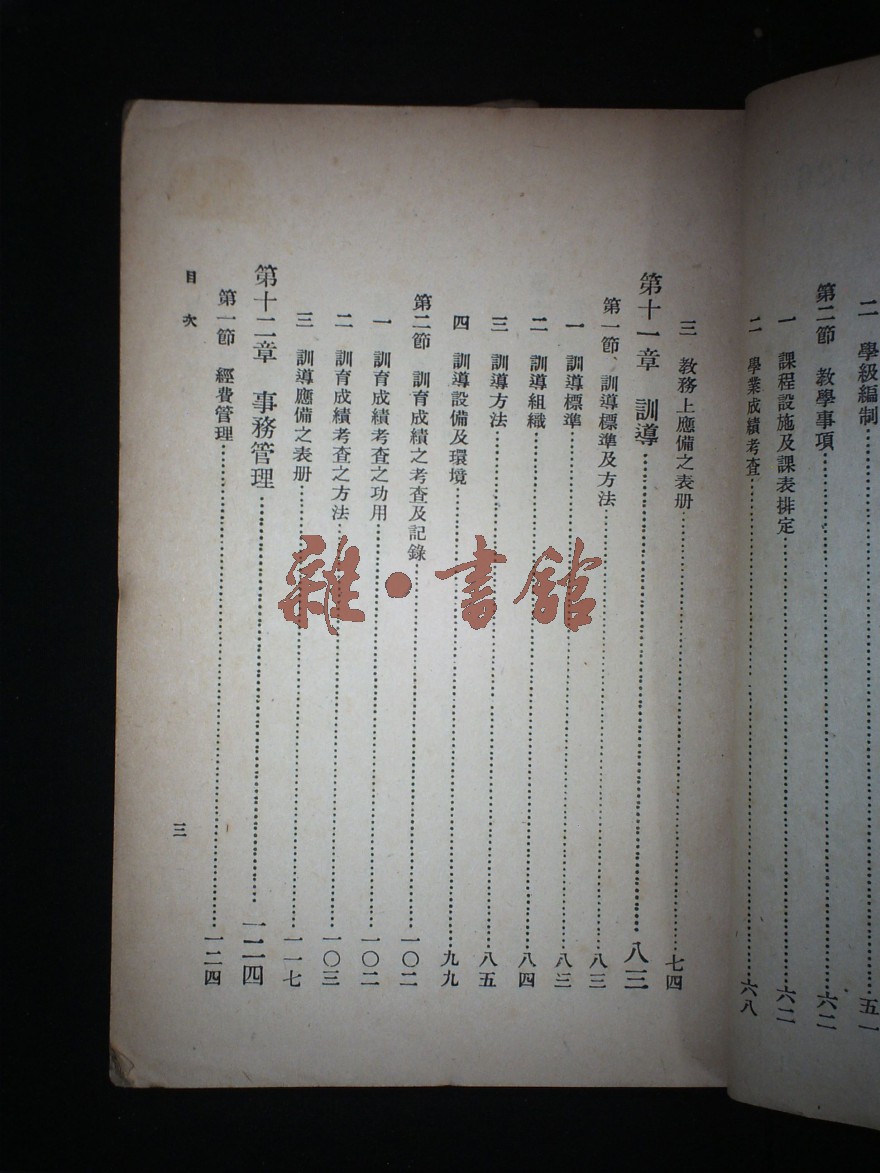 二　學級編制……五一
第二節　教學事項……六二
一　課程設施及課表排定……六二
二　學業成績考查……六八
三　教務上應備之表册……七四
第十一章　訓導……八三
第一節　訓導標準及方法……八三
一　訓導標準……八三
二　訓導組織……八四
三　訓導方法……八五
四　訓導設備及環境……九九
第二節　訓育成績之考查及記錄……一〇二
一　訓育成績考查之功用……一〇二
二　訓育成績考查之方法……一〇三
三　訓導應備之表册……一一七
第十二章　事務管理……一二四
第一節　經費管理……一二四
目次
三
雜·書館